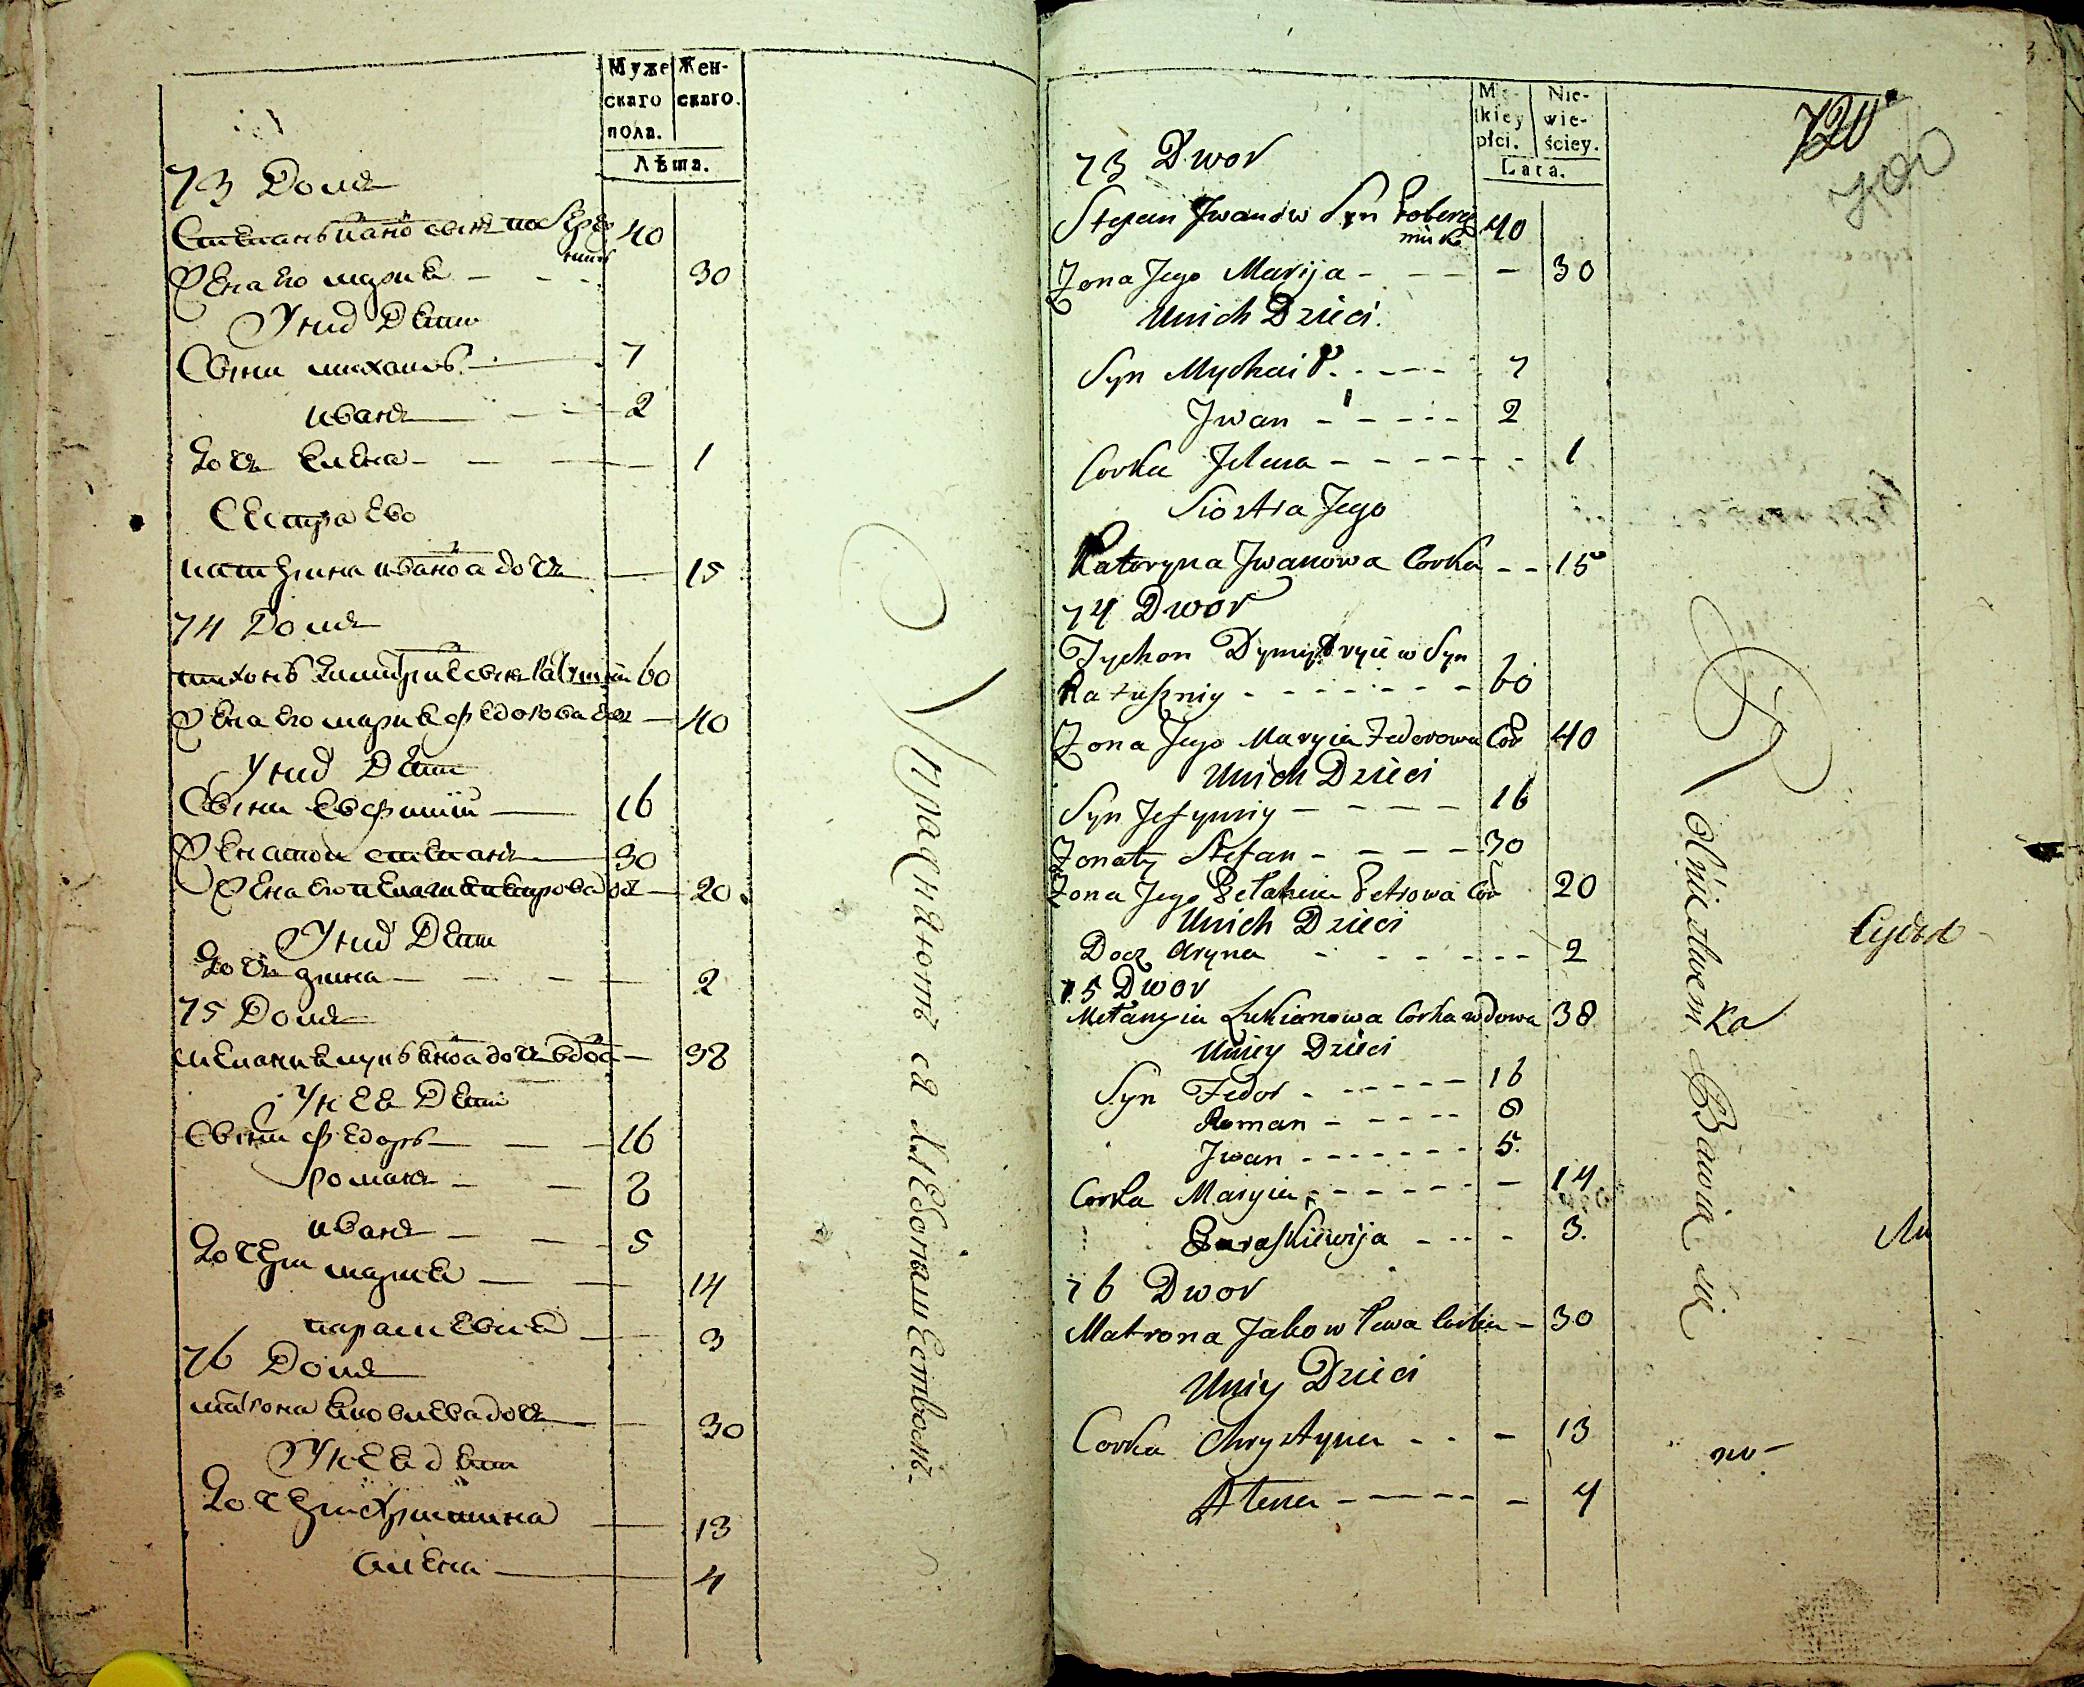 Муже Жен-
скаго скаго.
пола.
Лѣта.
73 Домъ
Степанъ Иванов сынъ 40
Жена его Мария 30
У них Дети
Сыни Михаилъ 7
Иванъ 2
Дочь Елена 1
Сестра Ево
Катерина Иванова дочь 15
74 Домъ
Тихонъ Димитриев сынъ 60
Жена его Мария Федорова дочь 40
У них Дети
Сыни Евфимий 16
Женатой Степанъ 30
Жена его Пелагия Петрова дочь 20
У них Дети
Дочь Арина 2
75 Домъ
Мелания Лукьянова дочь вдова 38
У нее Дети
Сыни Федоръ 16
Романъ 8
Иванъ 5
Дочери Мария 14
Параскевия 3
76 Домъ
Матрона Яковлева дочь 30
У нее дети
Дочери Христина 13
Алена 4
Упражняютъ ся Хлебопашествомъ
Mę- Nie-
skiey wie-
płci. ściey.
Lata.
720
73 Dwor
Stepan Jwanow Syn 40
Zona Jego Marija 30
Unich Dzieci.
Syn Mychaił 7
Jwan 2
Corka Jelena 1
Siostra Jego
Kateryna Jwanowa Corka 15
74 Dwor
Tychon Dymytryiew Syn
Kałuszniy 60
Zona Jego Maryia Fedorowa Cor 40
Unich Dzieci
Syn Jefymiy 16
Zonaty Stefan 30
Zona Jego Pełahia Petrowa Cor 20
Unich Dzieci
Docz Aryna 2
75 Dwor
Mełanyia Łukianowa Corka wdowa 38
Uniey Dzieci
Syn Fedor 16
Roman 8
Jwan 5.
Corka Maryia 14
Paraskiewija 3.
76 Dwor
Matrona Jakowlewa Corka 30
Uniy Dzieci
Corka Chrystyna 13
Alena 4
Rolnictwem Bawią się